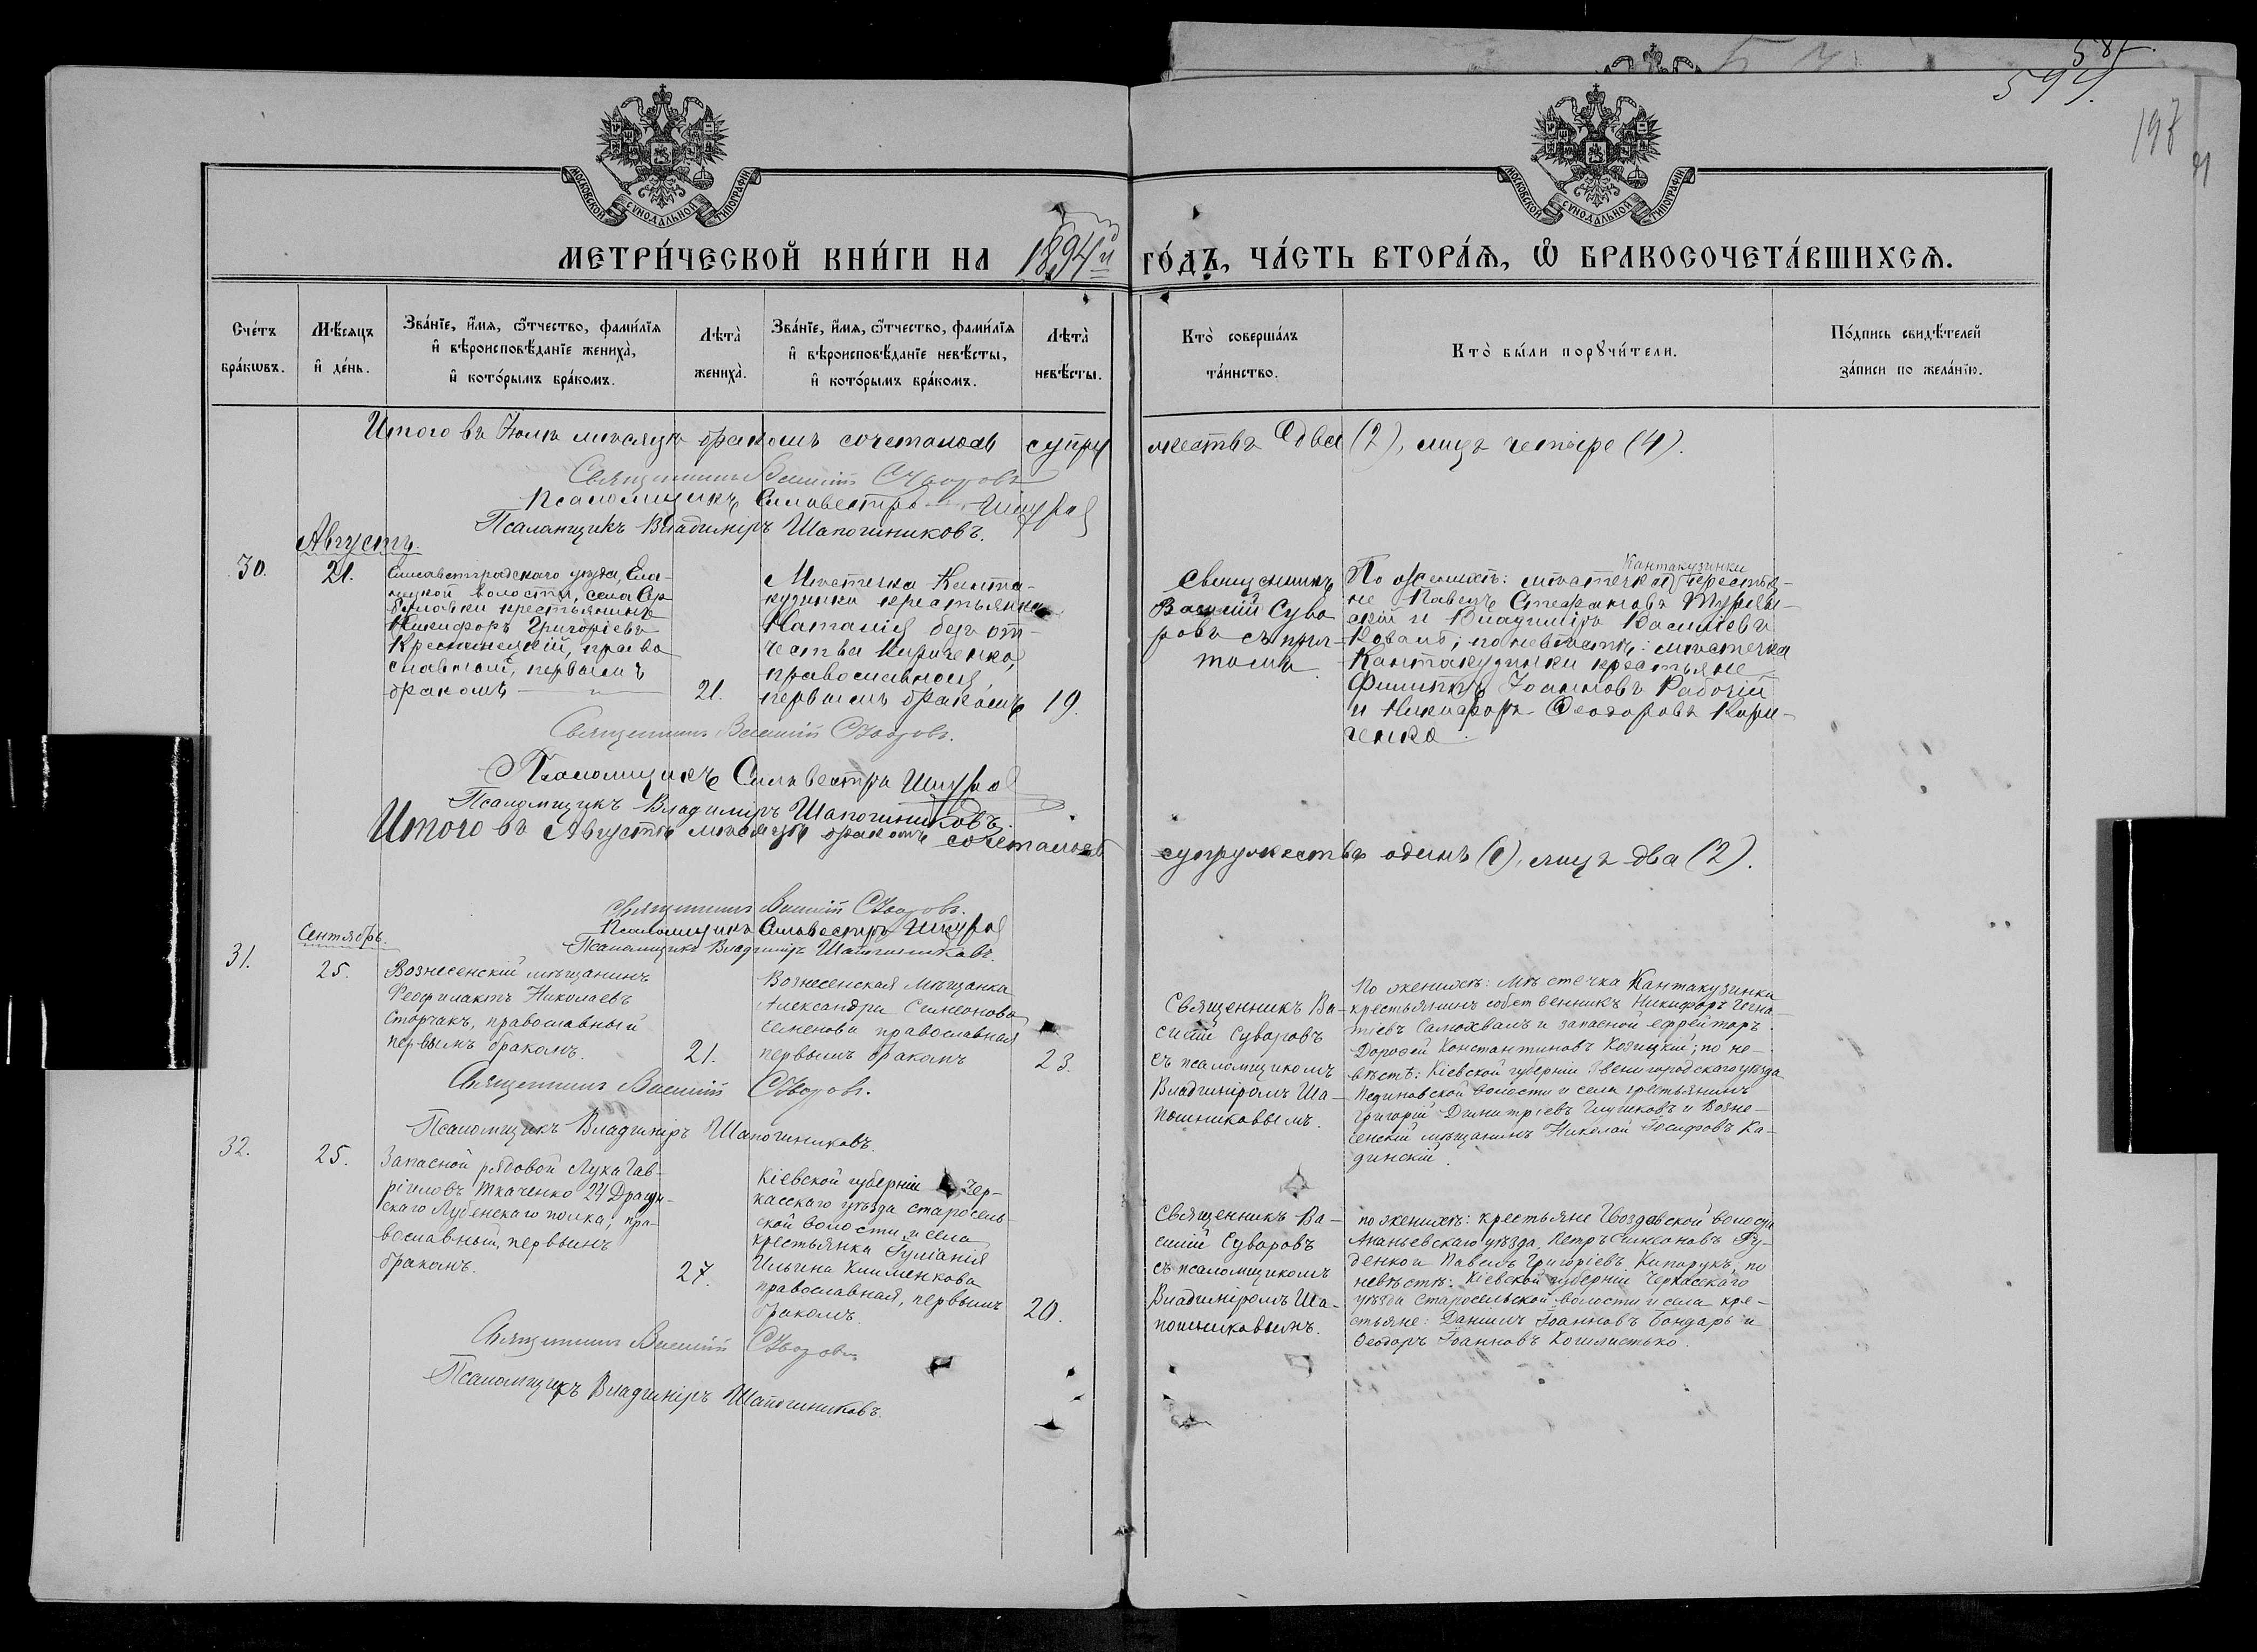 585.
594.
197
МОСКОВСКОЙ СУНОДАЛЬНОЙ ТИПОГРАФІИ
МОСКОВСКОЙ СУНОДАЛЬНОЙ ТИПОГРАФІИ
МЕТРИ́ЧЕСКОЙ КНИ́ГИ НА 1894й ГО́ДЪ, ЧА́СТЬ ВТОРА́Ѧ, Ѽ БРАКОСОЧЕТА́ВШИХСѦ.
Сче́тъ бра́кѡвъ.
Мѣ́сѧцъ и҆ де́нь.
Зва́нїе, и҆́мѧ, ѻ҆́тчество, фами́лїѧ
и҆ вѣроисповѣ́данїе жениха̀,
и҆ кото́рымъ бра́комъ.
Лѣта̀ жениха̀.
Зва́нїе, и҆́мѧ, ѻ҆́тчество, фами́лїѧ
и҆ вѣроисповѣ́данїе невѣ́сты,
и҆ кото́рымъ бра́комъ.
Лѣта̀ невѣ́сты.
Кто̀ соверша́лъ та́инство.
Кто̀ бы́ли порꙋчи́тели.
По́дпись свидѣ́телей за́писи по жела́нїю.
Итого въ Іюлѣ мѣсяцѣ бракомъ сочеталось супру жествъ два (2), лицъ четыре (4).
Священникъ Василій Суворовъ
Псаломщикъ Сильвестръ
Псаломщикъ Владиміръ Шапошниковъ.
Августъ.
30.
21.
Елисаветградскаго уѣзда, Ела-
нецкой волости, села Сер-
буловки крестьянинъ
Никифоръ Григоріевъ
православный, первымъ
бракомъ
21.
Мѣстечка Канта-
кузинки крестьянка
Наталія безъ от-
чества Кириченко,
православная,
первымъ бракомъ
19.
Священникъ
Василій Суво
ровъ съ прич-
томъ.
Кантакузинки
По женихѣ: мѣстечка крестья-
не Павелъ Стефановъ
и Владиміръ Василіевъ
Коваль; по невѣстѣ: мѣстечка
Кантакузинки крестьяне
Филиппъ Іоанновъ Рабочій
и Никифоръ Ѳеодоровъ Кири-
ченко.
Священникъ Василій Суворовъ.
Псаломщикъ Сильвестръ
Псаломщикъ Владиміръ Шапошниковъ.
Итого въ Августѣ мѣсяцѣ бракомъ сочеталось супружествъ одинъ (1), лицъ два (2).
Священникъ Василій Суворовъ.
Псаломщикъ Сильвестръ
Псаломщикъ Владиміръ Шапошниковъ.
Сентябрь.
31.
25.
Вознесенскій мѣщанинъ
Феофилактъ Николаевъ
Сторчакъ, православный
первымъ бракомъ.
21.
Вознесенская мѣщанка
Александра Симеонова
Семенова православная
первымъ бракомъ
23.
Священникъ Ва-
силій Суворовъ
съ псаломщикомъ
Владиміромъ Ша-
пошниковымъ.
По женихѣ: мѣстечка Кантакузинки
крестьянинъ собственникъ Никифоръ Игна-
тіевъ Самохвалъ и запасной ефрейторъ
Дороѳей Константиновъ Козицкій; по не-
вѣстѣ: Кіевской губерніи Звенигородскаго уѣзда
Пединовской волости и села крестьянинъ
Григорій Димитріевъ Глушковъ и Возне-
сенскій мѣщанинъ Николай Іосифовъ Ка-
динскій.
Священникъ Василій Суворовъ.
Псаломщикъ Владиміръ Шапошниковъ.
32.
25.
Запасной рядовой Лука Гав-
ріиловъ Ткаченко 24 Драгун-
скаго Лубенскаго полка, пра-
вославный, первымъ
бракомъ.
27.
Кіевской губерніи Чер-
касскаго уѣзда Старосель-
ской волости и села
крестьянка Іуліанія
Ильина Клименкова
православная, первымъ
бракомъ.
20.
Священникъ Ва-
силій Суворовъ
съ псаломщикомъ
Владиміромъ Ша-
пошниковымъ.
по женихѣ: крестьяне Гвоздавской волости
Ананьевскаго уѣзда, Петръ Симеоновъ Гу-
денко и Павелъ Григоріевъ Кипорукъ; по
невѣстѣ: Кіевской губерніи Черкасскаго
уѣзда Старосельской волости и села кре-
стьяне: Даніилъ Іоанновъ Бондарь и
Ѳеодоръ Іоанновъ
Священникъ Василій Суворовъ
Псаломщикъ Владиміръ Шапошниковъ.